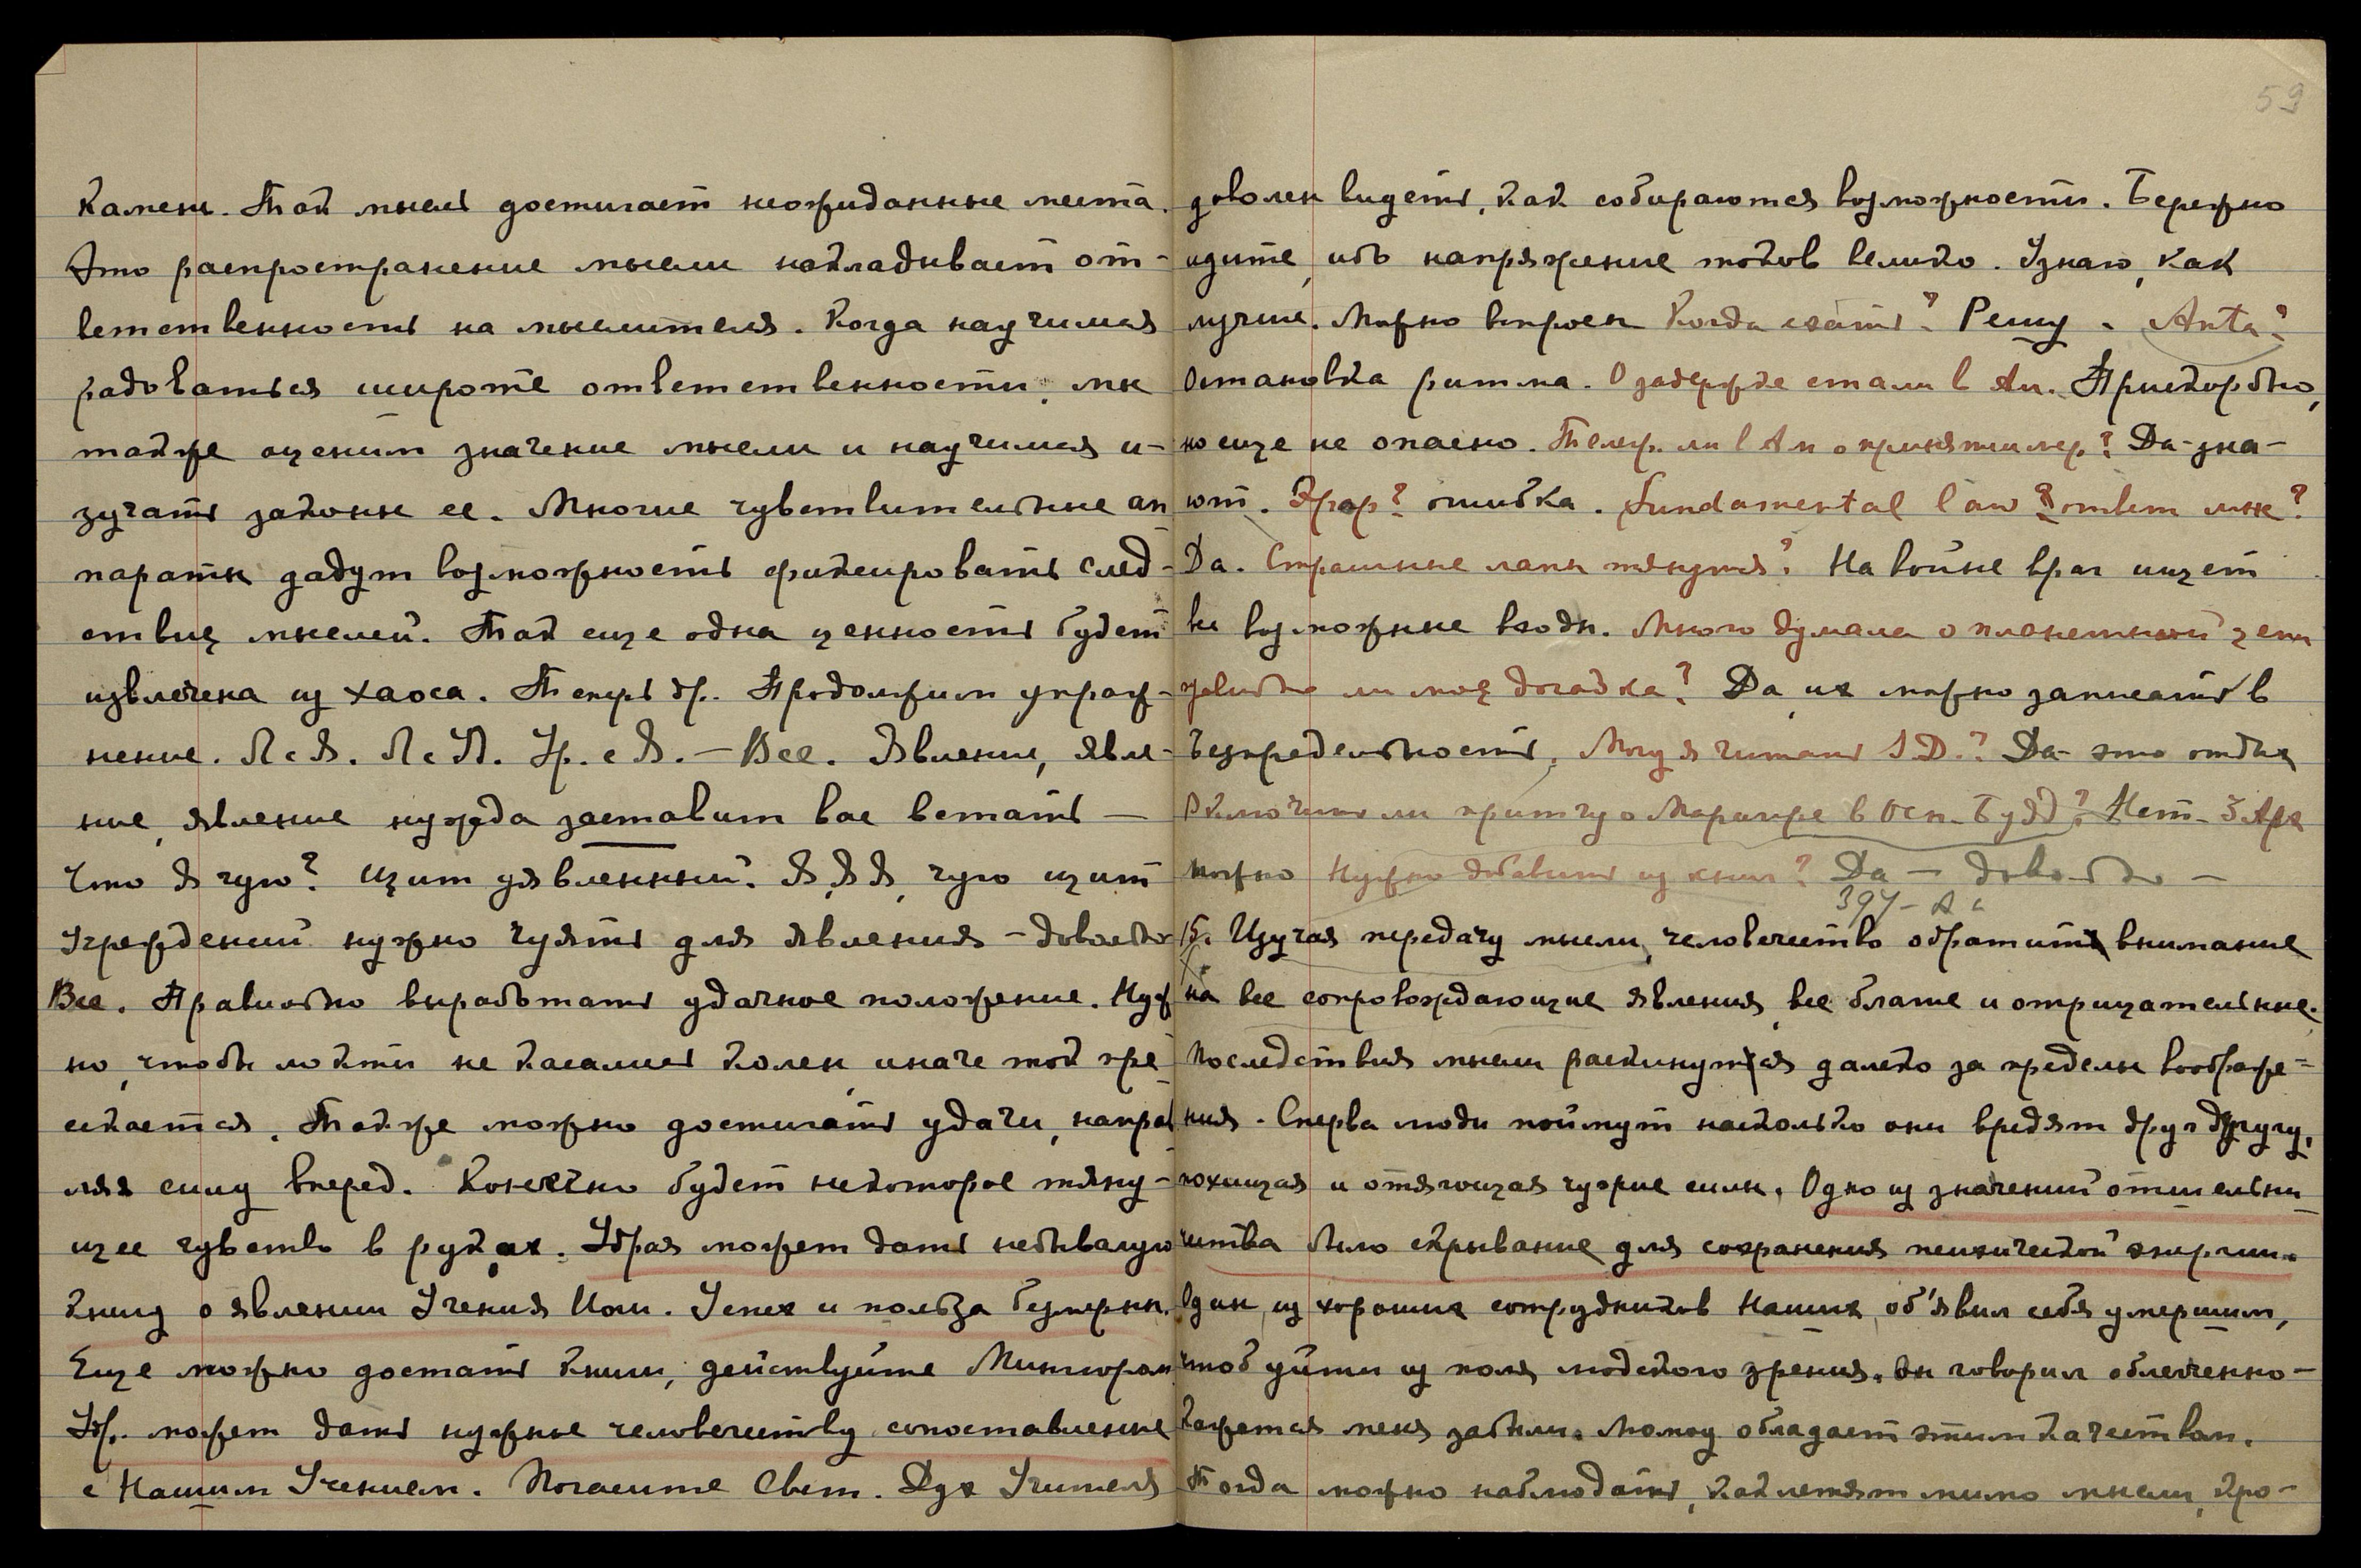 Камени. Так мысль достигает неожиданные места.
Это распространение мысли накладывает от-
ветственность на мыслителя. Когда научимся
радоваться широте ответственности, мы
также оценим значение мысли и научимся и-
зучать законы ее. Многие чувствительные ап
параты дадут возможность фиксировать след-
ствие мыслей. Так еще одна ценность будет
извлечена из хаоса. Теперь др. Продолжим упраж-
нение. Л с Я. Л с П. Ур. с Я. — Все. Явление, явле-
ние, явление нужда заставит вас встать —
Что я чую? Щит уявленный. Я, Я, Я, чую щит
Учреждений нужно чуять для явления — довольно
Все. Правильно выработать удачное положение. Нуж
но, чтобы локти не касались колен, иначе ток пре-
секается. Также можно достигать удачи, направ
ляя силу вперед. Конечно будет некоторое тяну-
щее чувство в руках. Удрая может дать небывалую
книгу о явлении Учения Иги. Успех и польза безмерны.
Еще можно достать книги, действуйте Мингюром
Удр. может дать нужные человечеству сопоставление
с Нашим Учением. Погасите Свет. Дух Учителя
59
доволен видеть, как собираются возможности. Бережно
идите, ибо напряжение токов велико. Узнаю, как
лучше. Можно вопросы Когда ехать? Решу.
Остановка ритма. О задержке стали в Ам. Прискорбно,
но еще не опасно. Телегр. ли в Ам о принятии мер? Да - зна-
ют. ошибка. Fundamental law ? ответ мне?
Да. Страшные лапы тянутся? На войне враг ищет
все возможные входы. Много думала о планетной цепи
правильно ли моя догадка? Да, их можно записать в
Безпредельность. Могу я читать S.D.? Да - это отдых
Включить ли притчу о Мариире в Осн. Будд? Нет.
можно Нужно добавить из книг? Да — довольно —
394 - А
15. Изучая передачу мысли, человечество обратит внимание
на все сопровождающие явления, все благие и отрицательные.
Последствия мысли раскинутся далеко за пределы воображе-
ния. Сперва люди поймут насколько они вредят друг другу,
похищая и отягощая чужие силы. Одно из значений отшельни
чества было скрывание для сохранения психической энергии.
Один из хороших сотрудников Наших, об'явил себя умершим,
чтоб уйти из поля людского зрения. Он говорил облегченно -
Кажется меня забыли. Момоу обладает этим качеством.
Тогда можно наблюдать, как летят мимо мысли, кро-